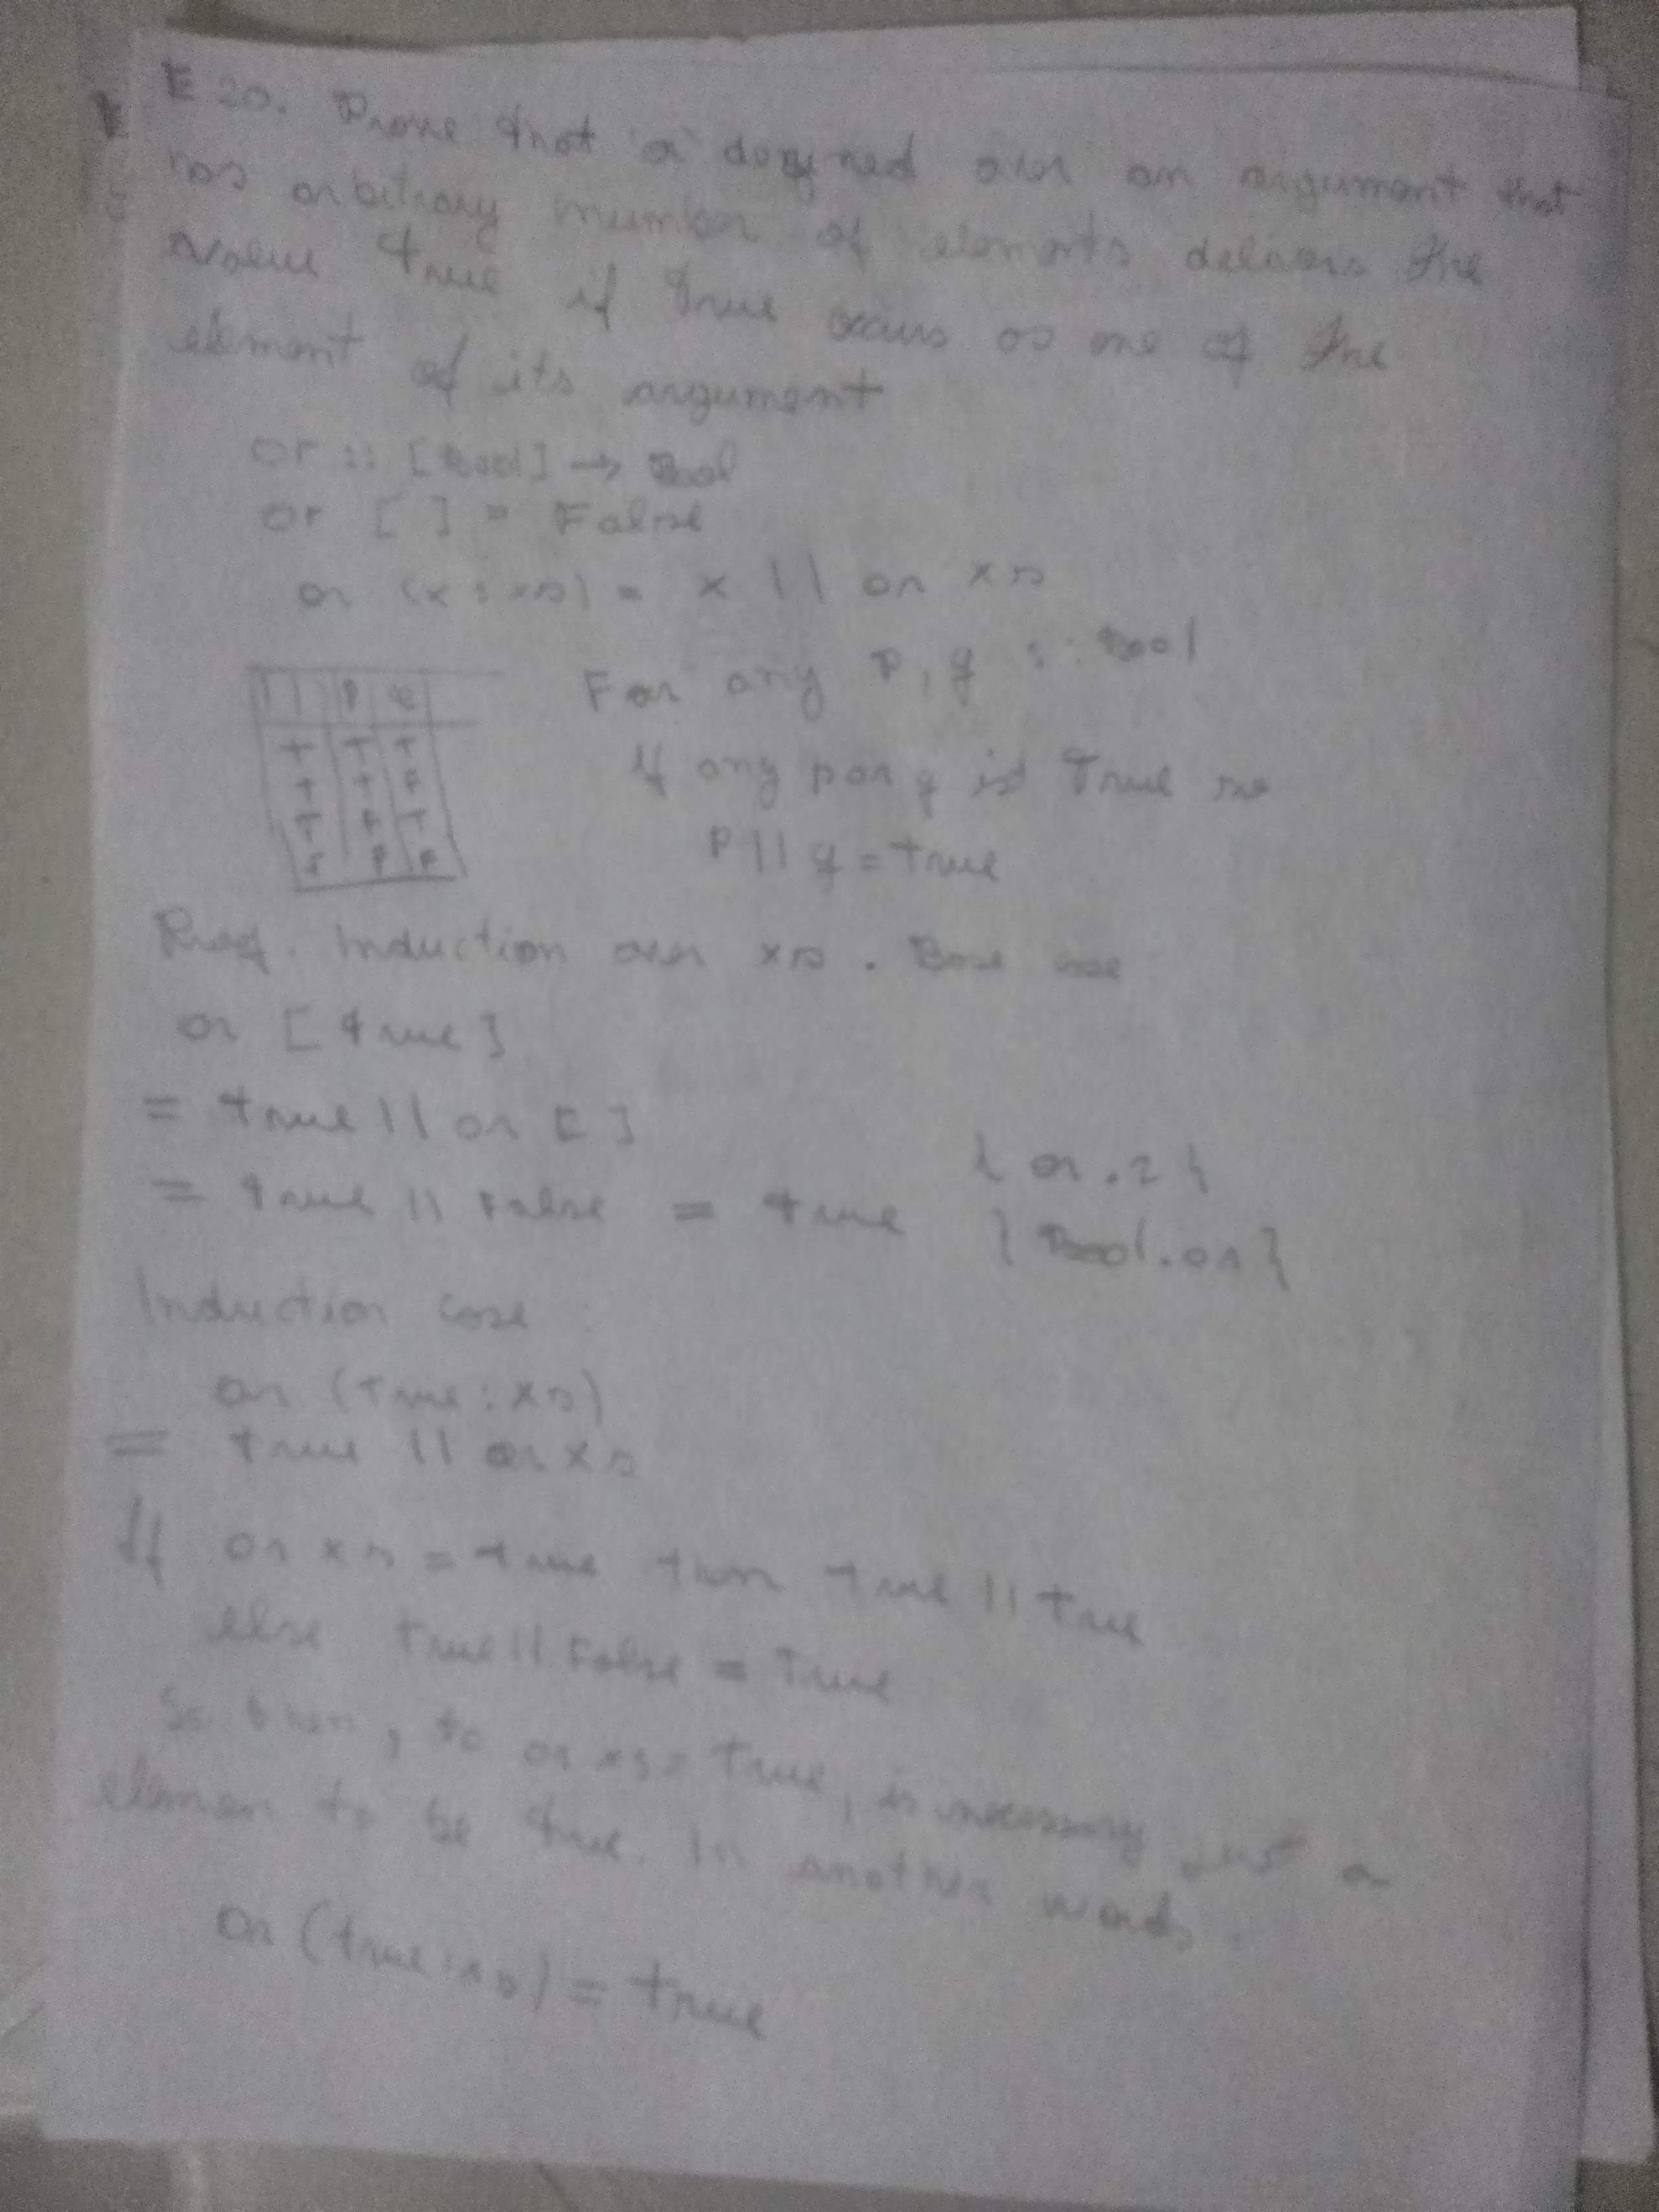 E 20. Prove that or defined over an argument that
has arbitrary number of elements delivers the
value true if true occurs as one of the
element of its argument
or :: [Bool] → Bool
or [ ] = False
or (x : xs) = x || or xs
|| P q
T T T
T T F
T F T
F F F
For any P, q :: Bool
If any p or q is True so
P || q = true
Proof. Induction over xs. Base case
or [true]
= true || or [ ]
{ or .2 }
= true || False = true { Bool.or }
Induction case :
or (true : xs)
= true || or xs
If or xs = true then true || true
else true || False = True
So then, to or xs = True, is necessary just a
elemen to be true. In another words.
or (true : xs) = true